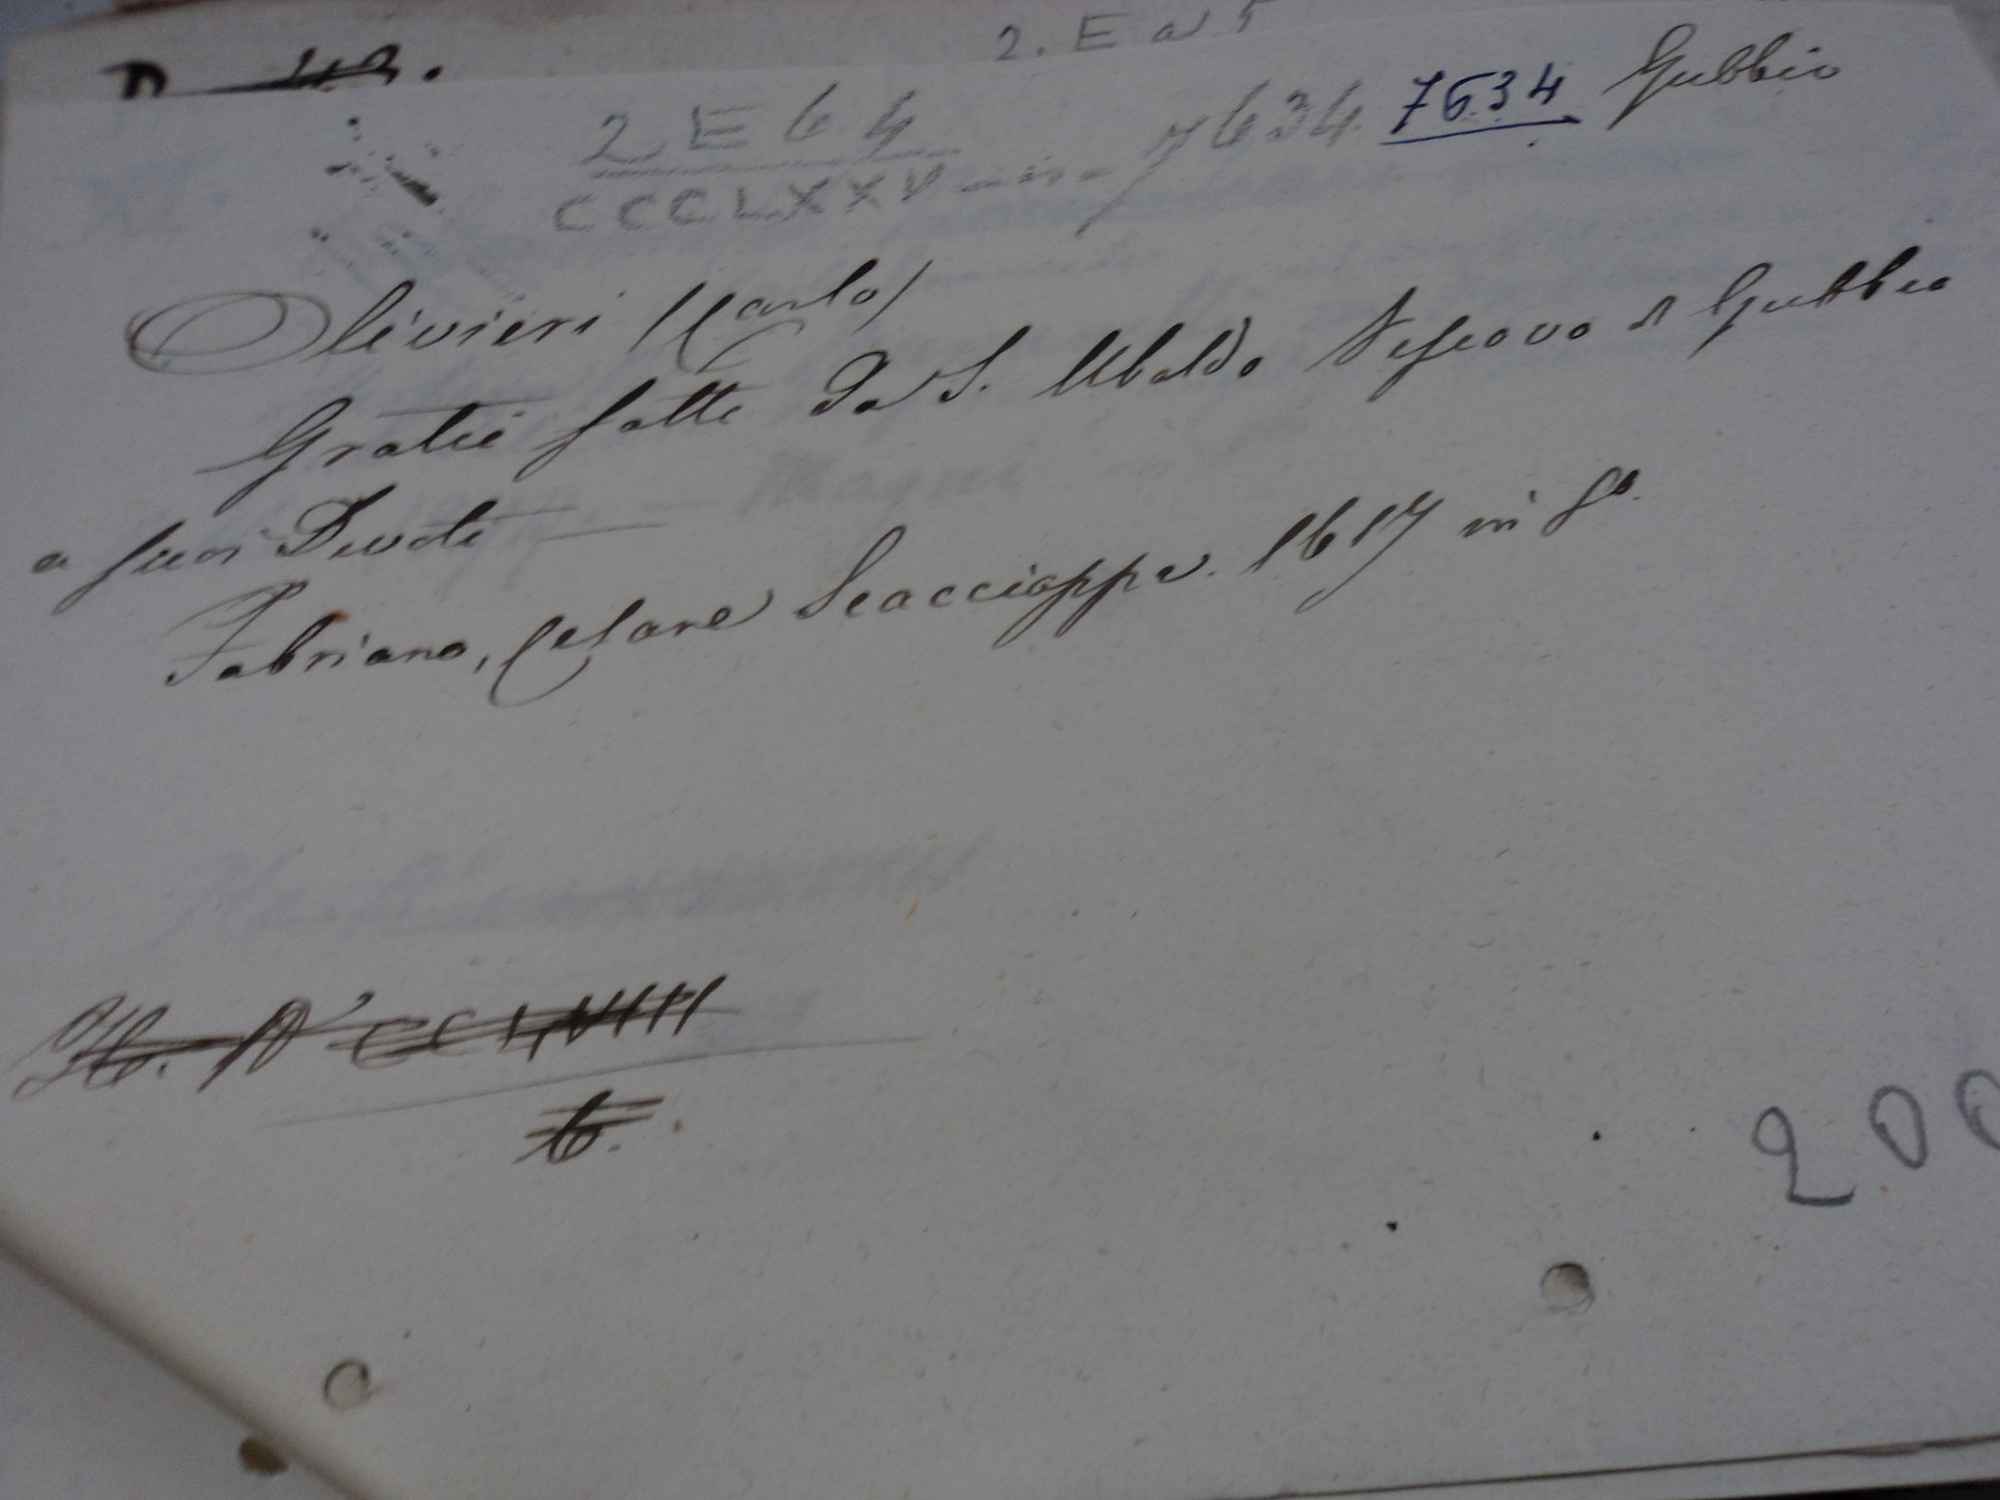 2. E a 5
2 E 64 7634 7634 Gubbio
CCCLXXV
Olivieri (Carlo)
Gratie fatte da S. Ubaldo Vescovo di Gubbio
a suoi Devoti
Fabriano, Cesare Scaccioppa. 1617 in 8º.
CCLVIII
6.
200